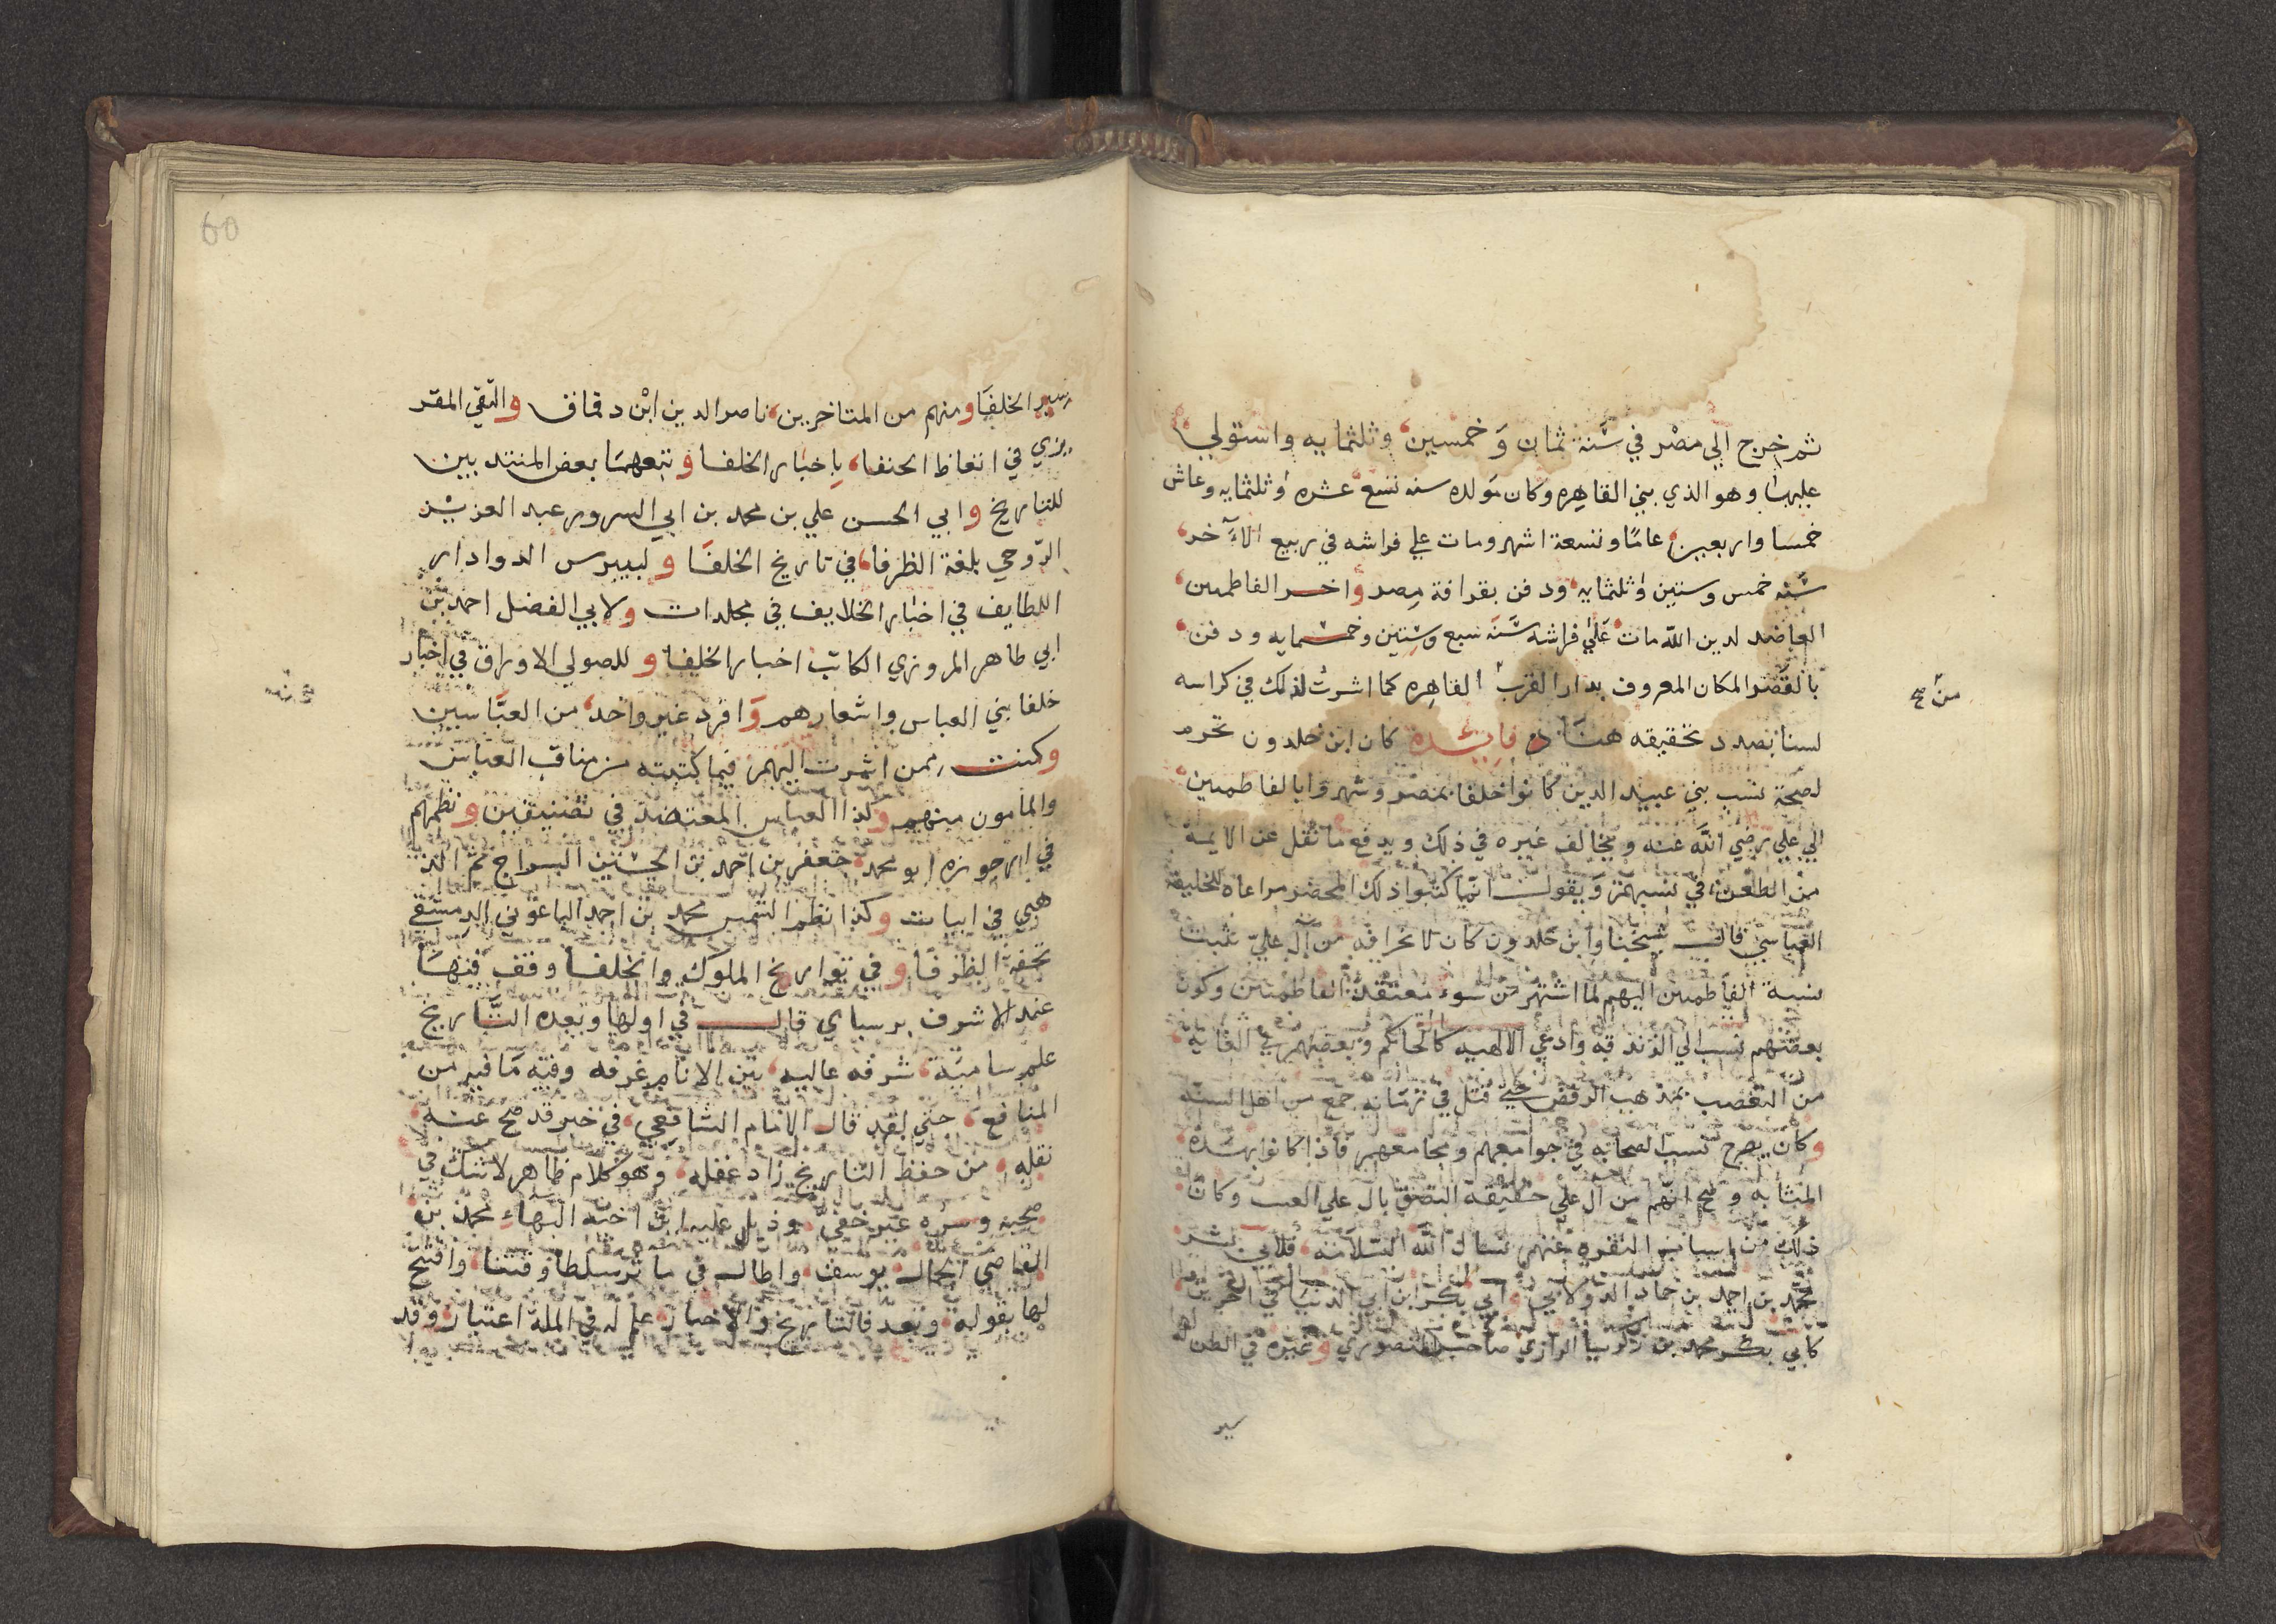 ثم خرج الي مصر في سنة ثمان وخمسين وثلثمايه واستولي
عليها وهو الذي بني القاهره وكان مولده سنه تسع عشره وثلثمايه وعاش
خمسا واربعين عاما وتسعة اشهر ومات علي فراشه في ربيع الآخر
سنه خمس وستين وثلثمايه ودفن بقرافة مصر واخر الفاطمين
العاضد لدين الله مات علي فراشه سنة سبع وستين وخمسمايه ودفن
بالقصر المكان المعروف بدار الضرب القاهره كما اشرت لذلك في كراسه
من صح
لسنا بصدد تحقيقه هنا فايدة كان ابن خلدون يجزم
لصحة نسب بني عبيد الذين كانوا خلفا بمصر وشهروا بالفاطمين
الي علي رضي الله عنه ويخالف غيره في ذلك ويدفع ما نقل عن الايمة
من الطعن في نسبهم ويقول انما كتبوا ذلك المحضر مراعاه للخليفة
العباسي قال شيخنا وابن خلدون كان لانحرافه من آل علي يثبت
نسبة الفاطمين اليهم لما اشتهر من سوء معتقد الفاطمين وكون
بعضهم نسب الي الزندقه وادعي الالهيه كالحاكم وبعضهم في الغايه
من التعصب بمذهب الرفض حتي قتل في زمانه جمع من اهل السنه
وكان يصرح بسب الصحابه في جوامعهم ومجامعهم فاذا كانوا بهذه
المثابه وصح انهم من آل علي حقيقة التصق بال علي العيب وكان
ذلك من اسباب النفره عنهم نسال الله السلامه فلابي بشر
محمد بن احمد بن حماد الدولابي وابي بكر ابن ابي الدنيا في اخرين
كابي بكر محمد بن زكريا الرازي صاحب المنصوري وغيره في الطب
سير
60
سير الخلفا ومنهم من المتاخرين ناصر الدين ابن دقماق والتقي المقر
يزي في اتعاظ الحنفا باخبار الخلفا وتبعهما بعض المنتدبين
للتاريخ وابي الحسن علي بن محمد بن ابي السرور عبد العزيز
الروحي بلغة الظرفا في تاريخ الخلفا ولبيبرس الدوادار
اللطايف في اخبار الخلايف في مجلدات ولابي الفضل احمد بن
ابي طاهر المروزي الكاتب اخبار الخلفا وللصولي الاوراق في اخبار
خلفا بني العباس واشعارهم وافرد غير واحد من العباسين
وكنت ممن اشرت اليهم فيما كتبته من مناقب العباس
والمامون منهم وكذا العباس المعتضد في تصنيفين ونظمهم
في ارجوزه ابو محمد جعفر بن احمد بن الحسين السراج ثم الذ
هبي في ابيات وكذا نظم الشمس محمد بن احمد الباعوني الدمشقي
تحفة الظرفا وفي تواريخ الملوك والخلفا وقف فيها
عند الاشرف برسباي قال في اولها وبعد التاريخ
علم سامية شرفه عاليه بين الانام غرفه وفيه ما فيه من
المنافع حتي لقد قال الامام الشافعي في خبر قد صح عنه
نقله من حفظ التاريخ زاد عقله وهو كلام ظاهر لا شك في
صحته وسره غير خفي وذيل عليه ابن اخته البهاء محمد بن
القاضي الجمال يوسف واطال في ماثر سلطان وقتنا وافتتح
لها بقوله وبعد فالتاريخ والاخبار علم له في الملة اعتبار وقد